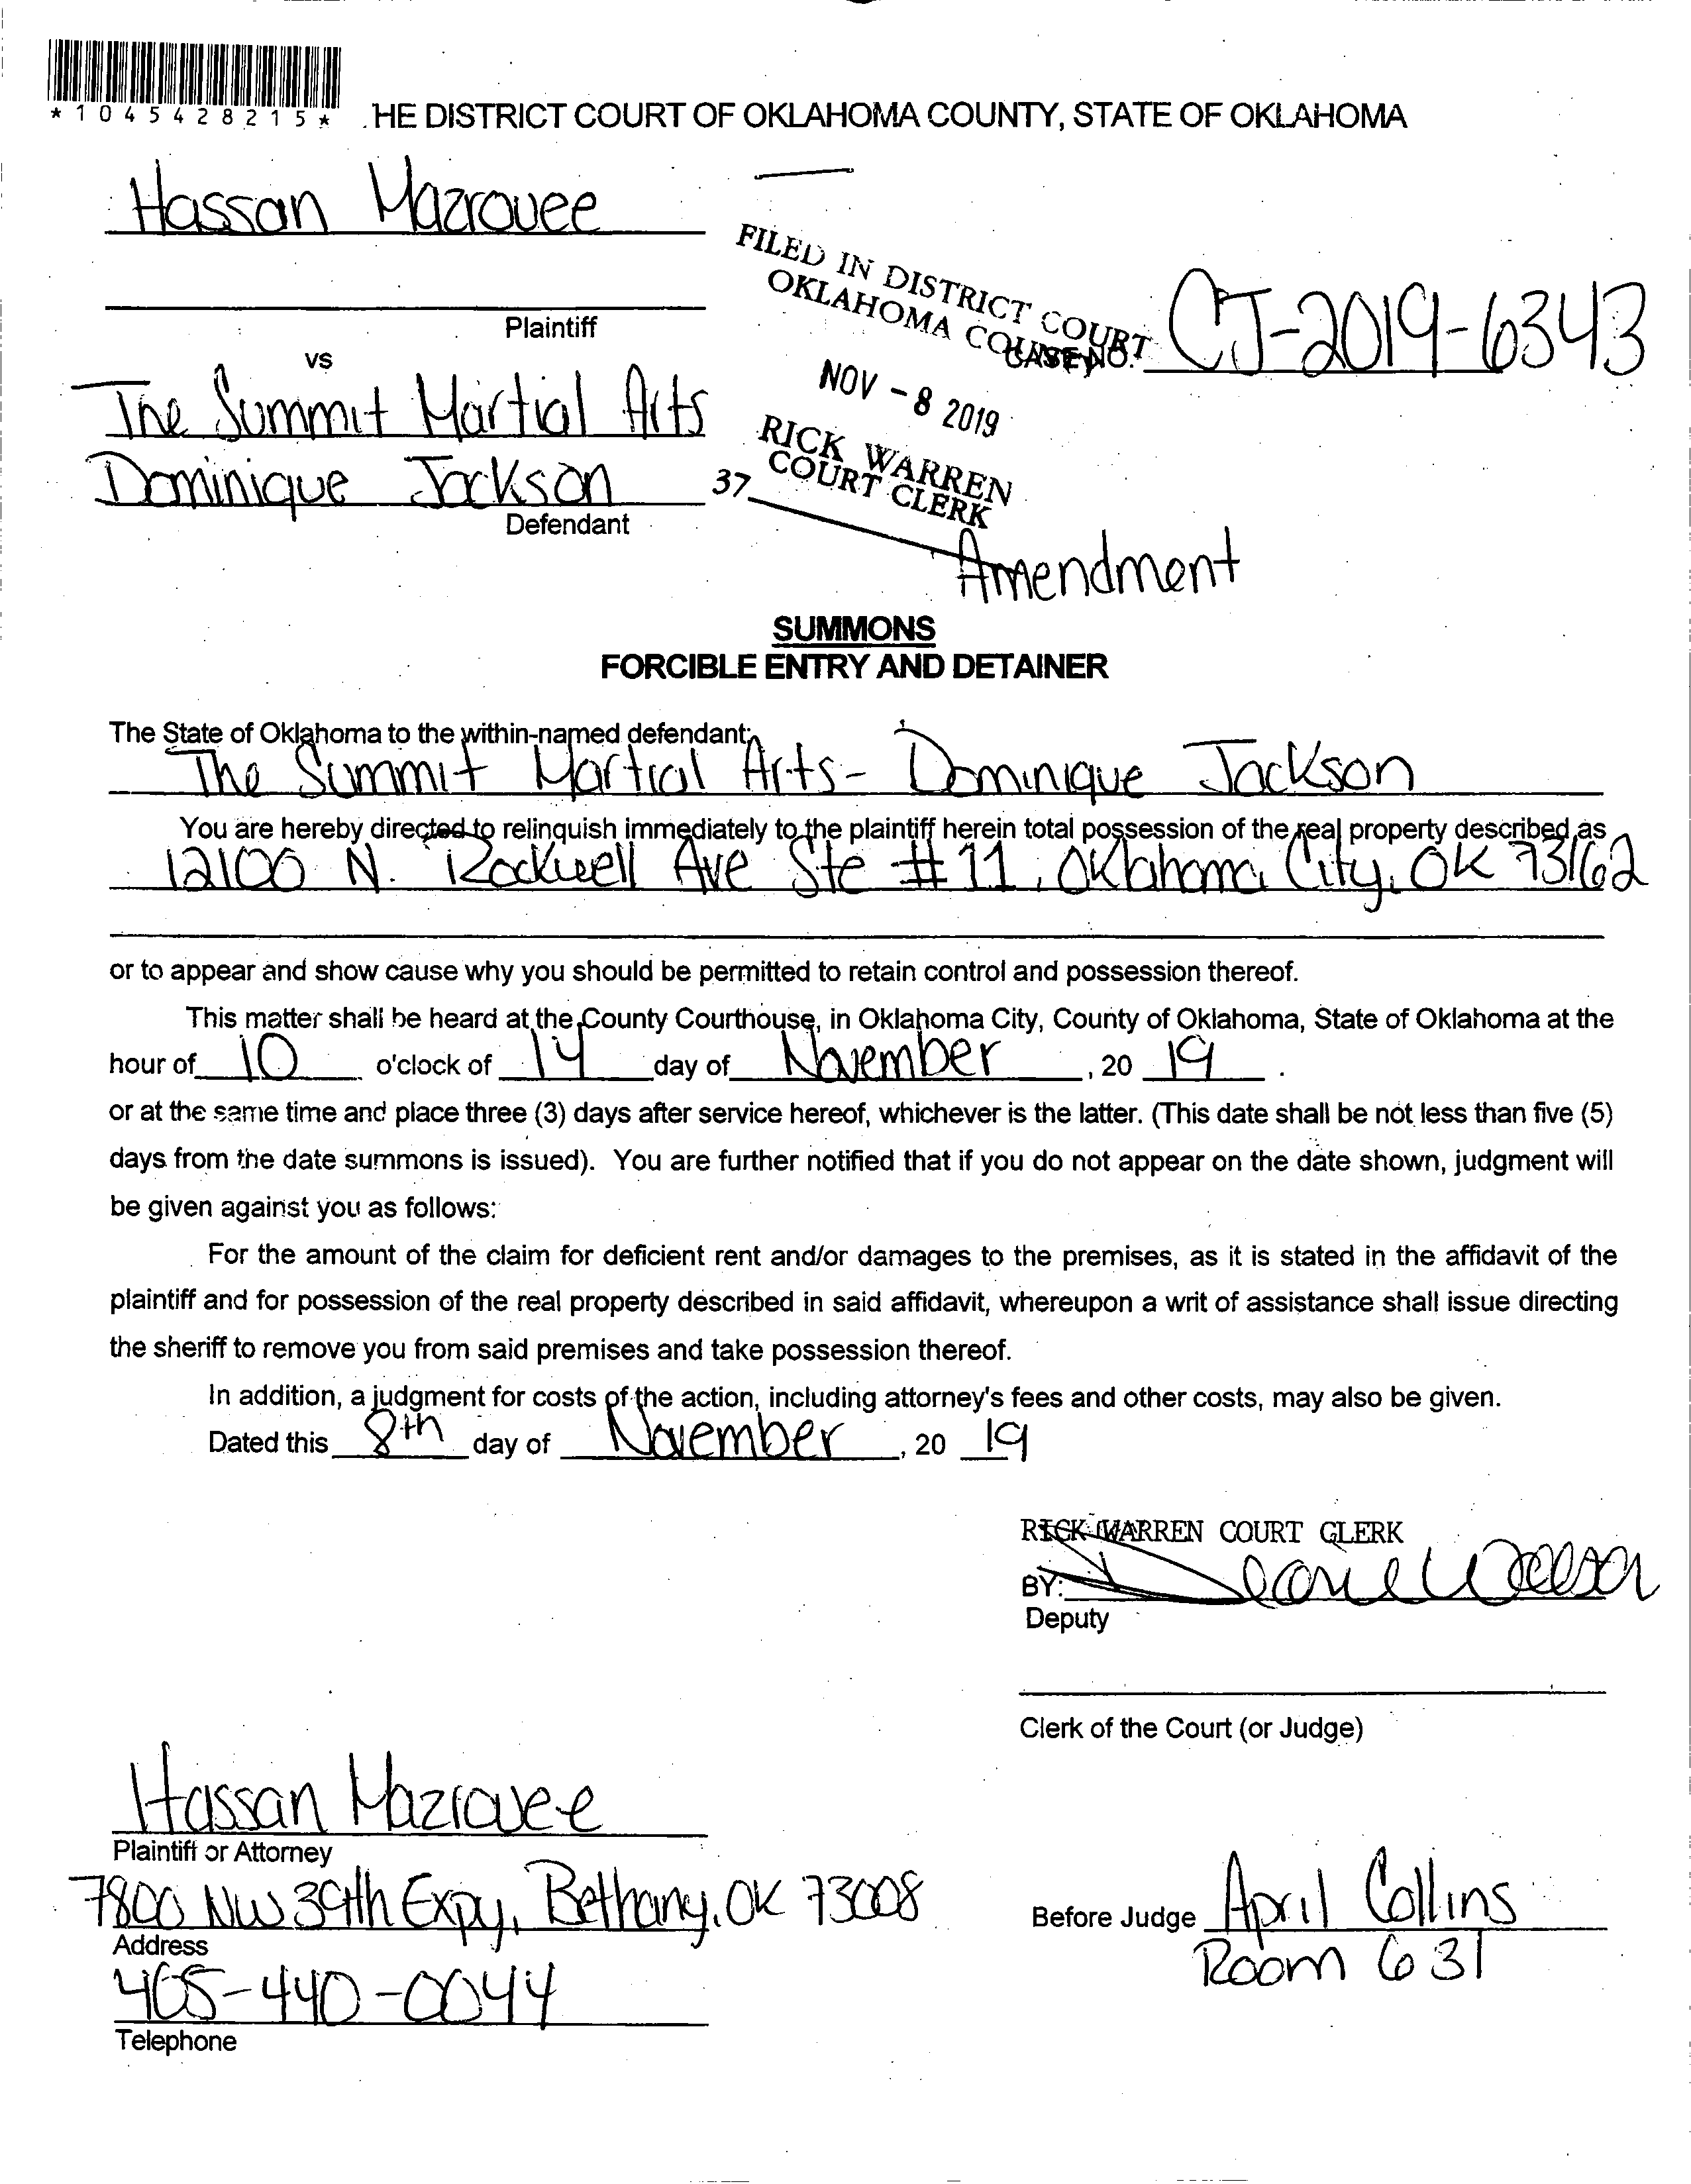 *1045428215*
HE DISTRICT COURT OF OKLAHOMA COUNTY, STATE OF OKLAHOMA
Hassan Mazrouee
Plaintiff
vs
The Summit Martial Arts
Dominique Jackson
Defendant
FILED IN DISTRICT COURT
OKLAHOMA COUNTY
CASE NO. CJ-2019-6343
NOV - 8 2019
RICK WARREN
COURT CLERK
37
Amendment
SUMMONS
FORCIBLE ENTRY AND DETAINER
The State of Oklahoma to the within-named defendant:
The Summit Martial Arts - Dominique Jackson
You are hereby directed to relinquish immediately to the plaintiff herein total possession of the real property described as
12100 N. Rockwell Ave Ste # 11, Oklahoma City, OK 73162
or to appear and show cause why you should be permitted to retain control and possession thereof.
This matter shall be heard at the County Courthouse, in Oklahoma City, County of Oklahoma, State of Oklahoma at the
hour of 10 o'clock of 14 day of November, 20 19.
or at the same time and place three (3) days after service hereof, whichever is the latter. (This date shall be not less than five (5)
days from the date summons is issued). You are further notified that if you do not appear on the date shown, judgment will
be given against you as follows:
For the amount of the claim for deficient rent and/or damages to the premises, as it is stated in the affidavit of the
plaintiff and for possession of the real property described in said affidavit, whereupon a writ of assistance shall issue directing
the sheriff to remove you from said premises and take possession thereof.
In addition, a judgment for costs of the action, including attorney's fees and other costs, may also be given.
Dated this 8th day of November, 20 19
RICK WARREN COURT CLERK
BY:
Deputy
Clerk of the Court (or Judge)
Hassan Mazrouee
Plaintiff or Attorney
7800 NW 39th Expy, Bethany, OK 73008
Address
405-440-0044
Telephone
Before Judge April Collins
Room 631